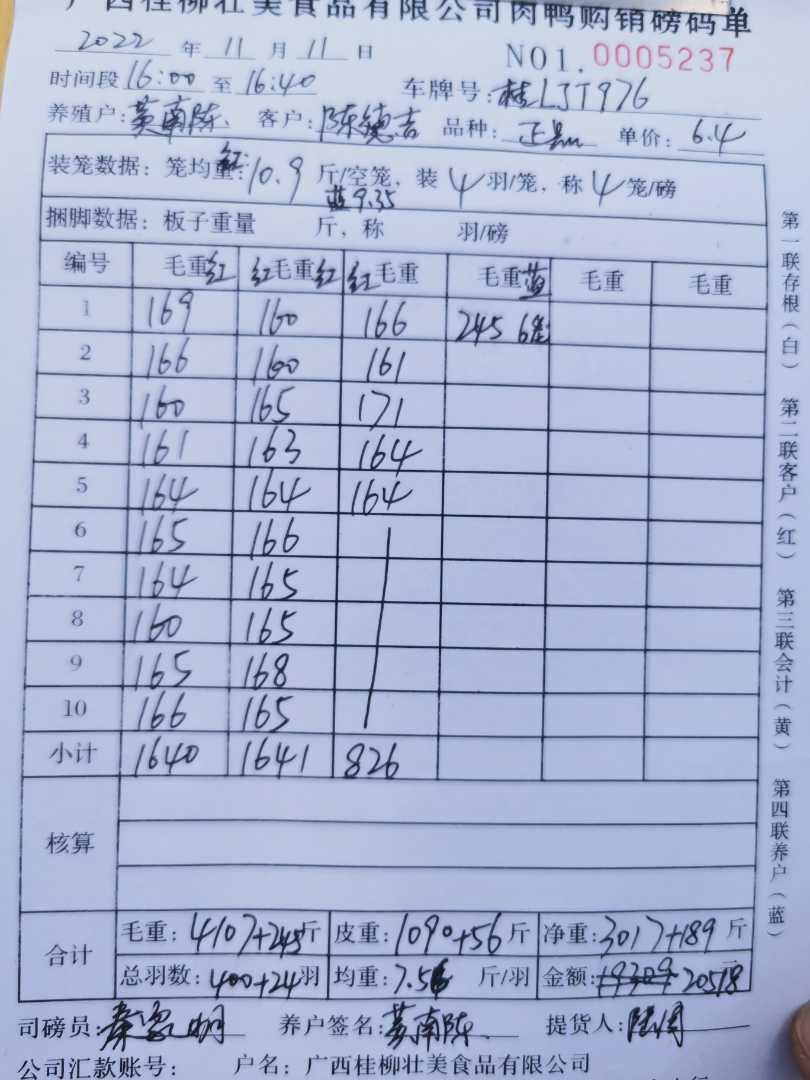 广西桂柳壮美食品有限公司肉鸭购销磅码单
2022 年 11 月 11 日 NO1.0005237
时间段 16:00 至 16:40 车牌号: 桂LJT976
养殖户: 黄南陈 客户: 陈德吉 品种: 单价: 6.4
装笼数据: 笼均重: 红 10.9 斤/空笼, 装 4 羽/笼, 称 4 笼/磅
蓝 9.35
捆脚数据: 板子重量 斤, 称 羽/磅
编号 毛重红 红毛重红 红毛重 毛重蓝 毛重 毛重
1 169 160 166 245 6笼
2 166 160 161
3 160 165 171
4 161 163 164
5 164 164 164
6 165 166
7 164 165
8 160 165
9 165 168
10 166 165
小计 1640 1641 826
核算
合计 毛重: 4107+245斤 皮重: 1090+56斤 净重: 3017+189 斤
总羽数: 400+24羽 均重: 7.56 斤/羽 金额: 19309 20518 元
司磅员: 养户签名: 黄南陈 提货人:
公司汇款账号: 户名: 广西桂柳壮美食品有限公司
第一联存根(白) 第二联客户(红) 第三联会计(黄) 第四联养户(蓝)